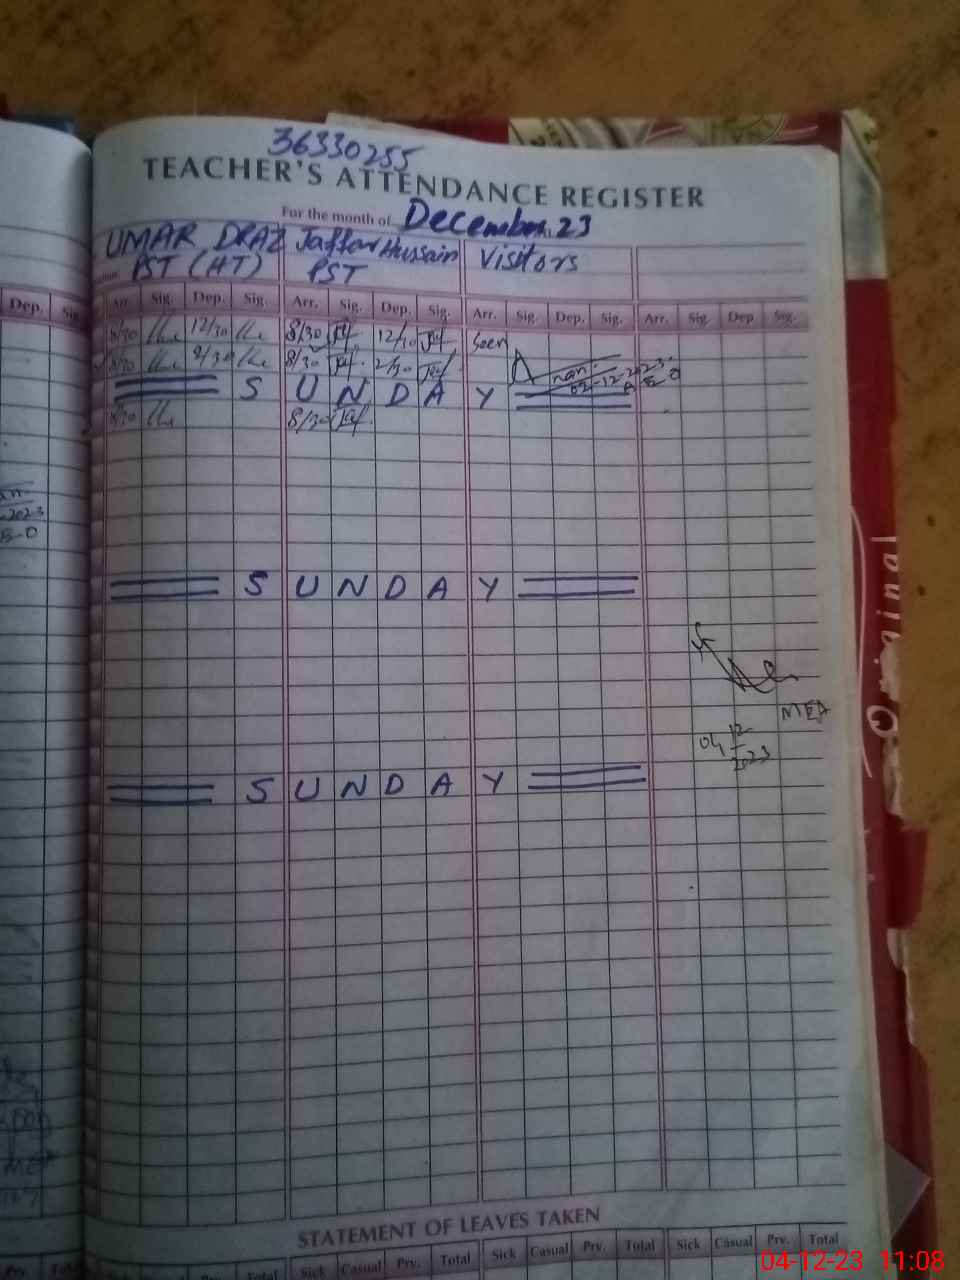 36330255
TEACHER'S ATTENDANCE REGISTER
For the month of December. 23
UMAR DRAZ Jaffar Hussain Visitors
PST (HT) PST
Dep. Sig.
Arr. Sig. Dep. Sig. Arr. Sig. Dep. Sig. Arr. Sig. Dep. Sig. Arr. Sig. Dep Sig.
8/30 12/30 8/30 12/30 Seen
8/30 2/30 8/30 2/30
02-12-2023
A E O
S U N D A Y
8/30 8/30
S U N D A Y
MEA
04 12
2023
S U N D A Y
STATEMENT OF LEAVES TAKEN
Prv. Total
Sick Casual Prv. Total Sick Casual Prv. Total Sick Casual Prv. Total
04-12-23 11:08